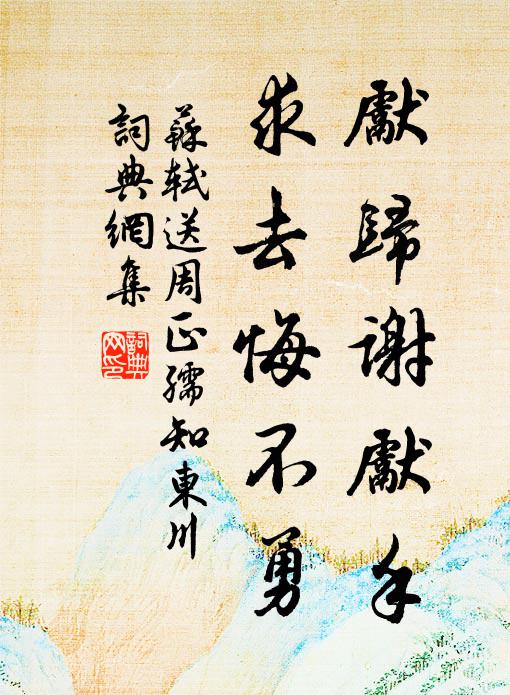 獻歸謝獻手
求去悔不勇
蘇軾送周正孺知東川
詞典網集
詞典網印